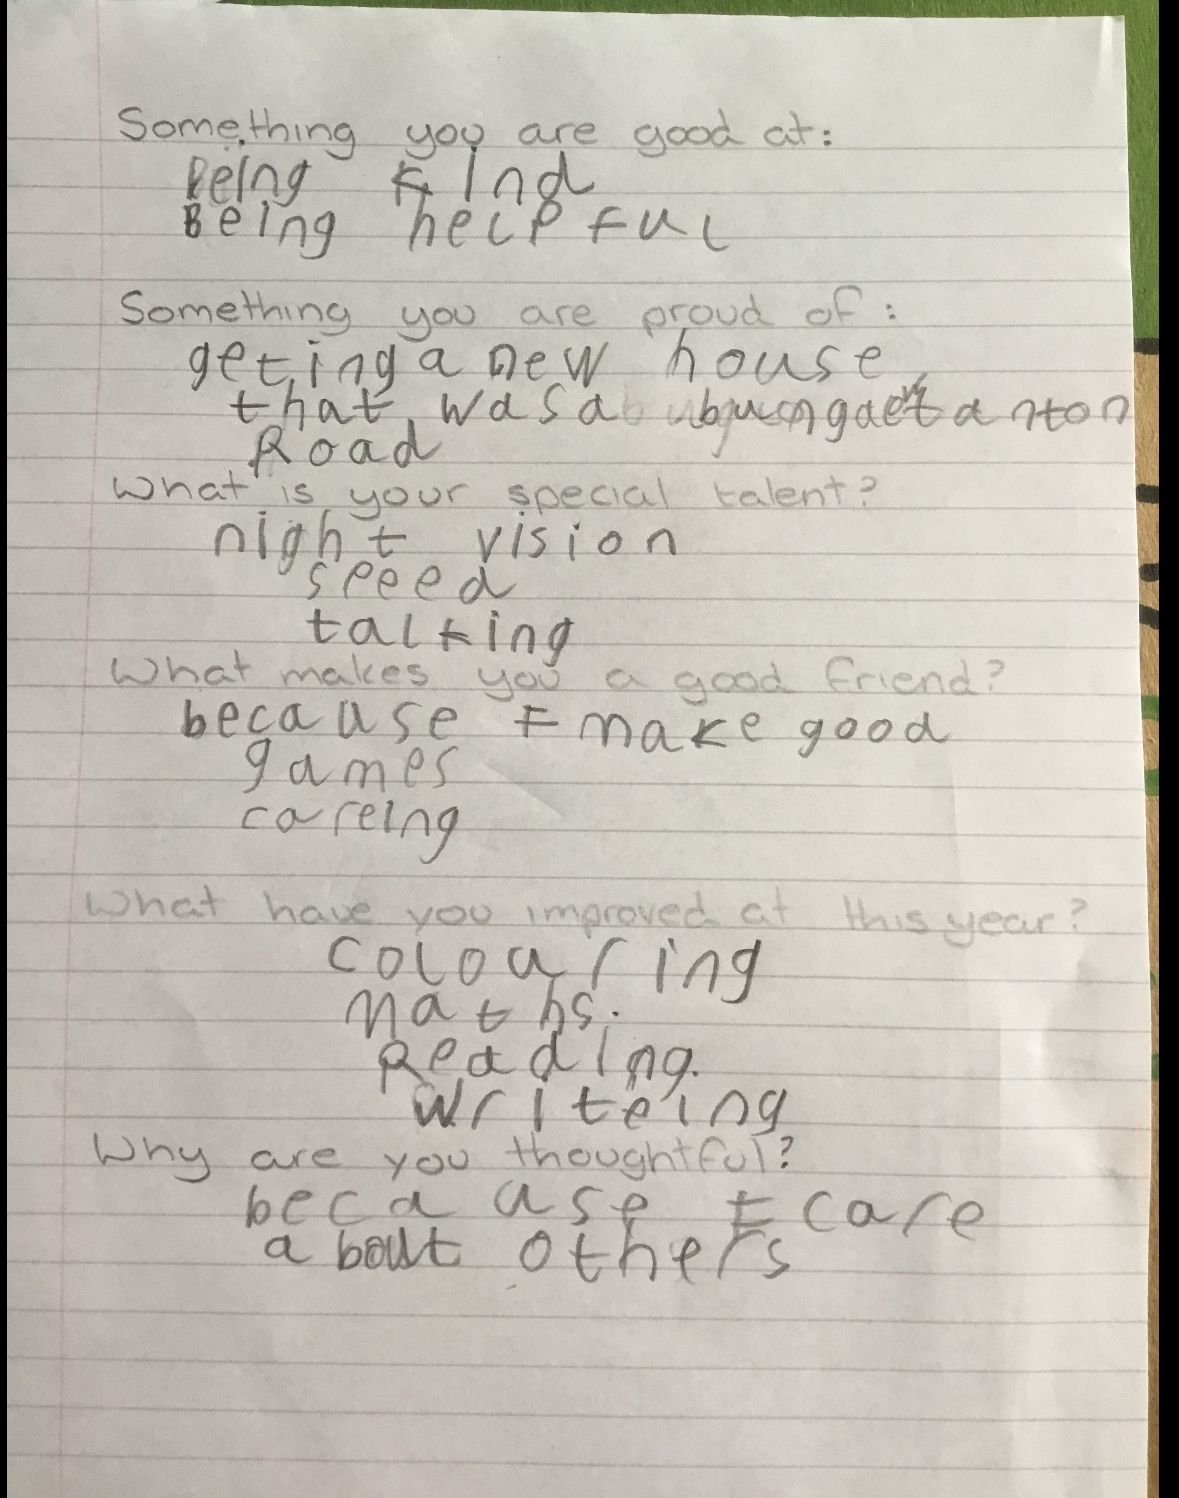 Something you are good at:
Being kind
Being helpful
Something you are proud of:
geting a new house
that was a
Road
What is your special talent?
night vision
speed
talking
What makes you a good friend?
because I make good
games
careing
What have you improved at this year?
colouring
maths.
Reading.
writeing
Why are you thoughtful?
because I care
about others